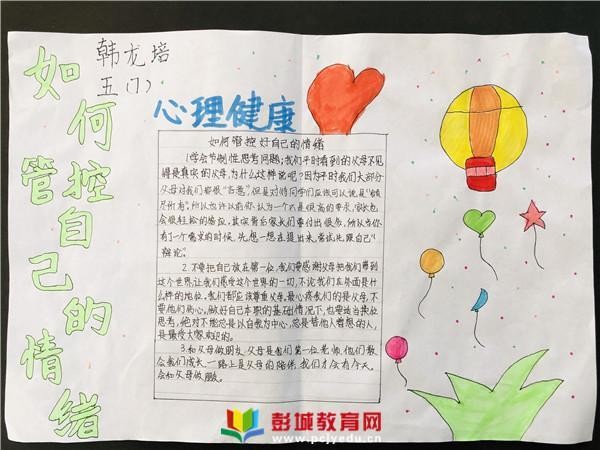 韩龙培
五(7)
如何管控自己的情绪
心理健康
如何管控好自己的情绪
1.学会节制性思考问题；我们平时看到的父母不见
得是真实的父母，为什么这样说呢？因为平时我们大部分
父母对我们都很“吝啬”但是对待同学们应该可以说是“倾
尽所有”。所以也许以前你认为一个不是很高的要求，家长也
会很轻松的给应，其实背后家长们要付出很多，所以当你
有了一个需求的时候，先想一想在提出来，尝试比跟自己“
辩论”。
2.不要把自己放在第一位，我们要感谢父母把我们带到
这个世界，让我们感受这个世界的一切，不论我们在外面是什
么样的地位。我们都应该尊重父母。最心疼我们的是父母，不
要伤他们的心。做好自己本职的基础情况下，也要适当换位
思考，绝对不能总是以自我为中心，总是替他人着想的人，
是最受大家欢迎的。
3.和父母做朋友，父母是我们第一位老师，他们教
会我们成长，一路上是父母的陪伴，我们才会有今天。
会和父母做朋友。
彭城教育网
www.pcjyedu.cn